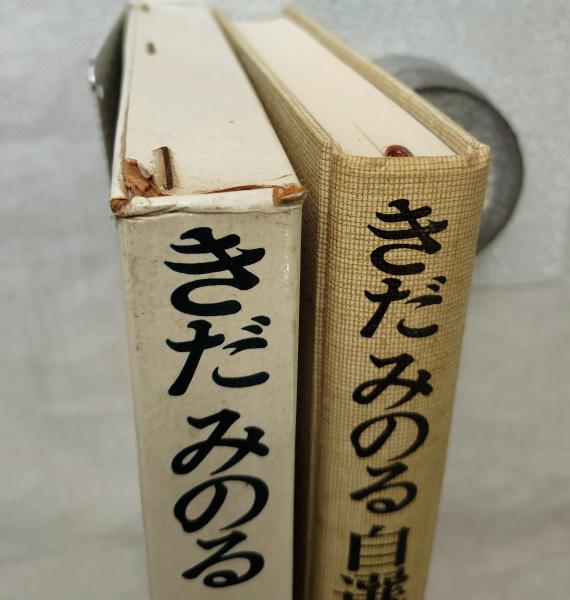 きだみのる
きだみのる自選